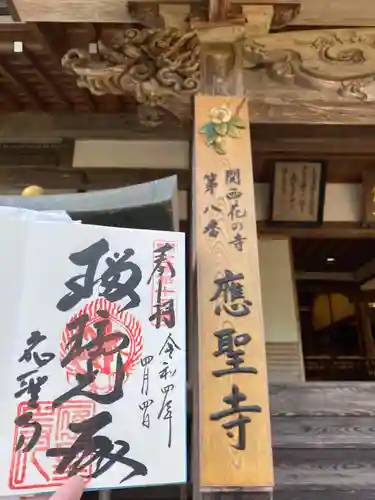 関西花の寺
第八番
應聖寺
奉拝
令和四年
四月四日
瑠璃殿
应聖寺